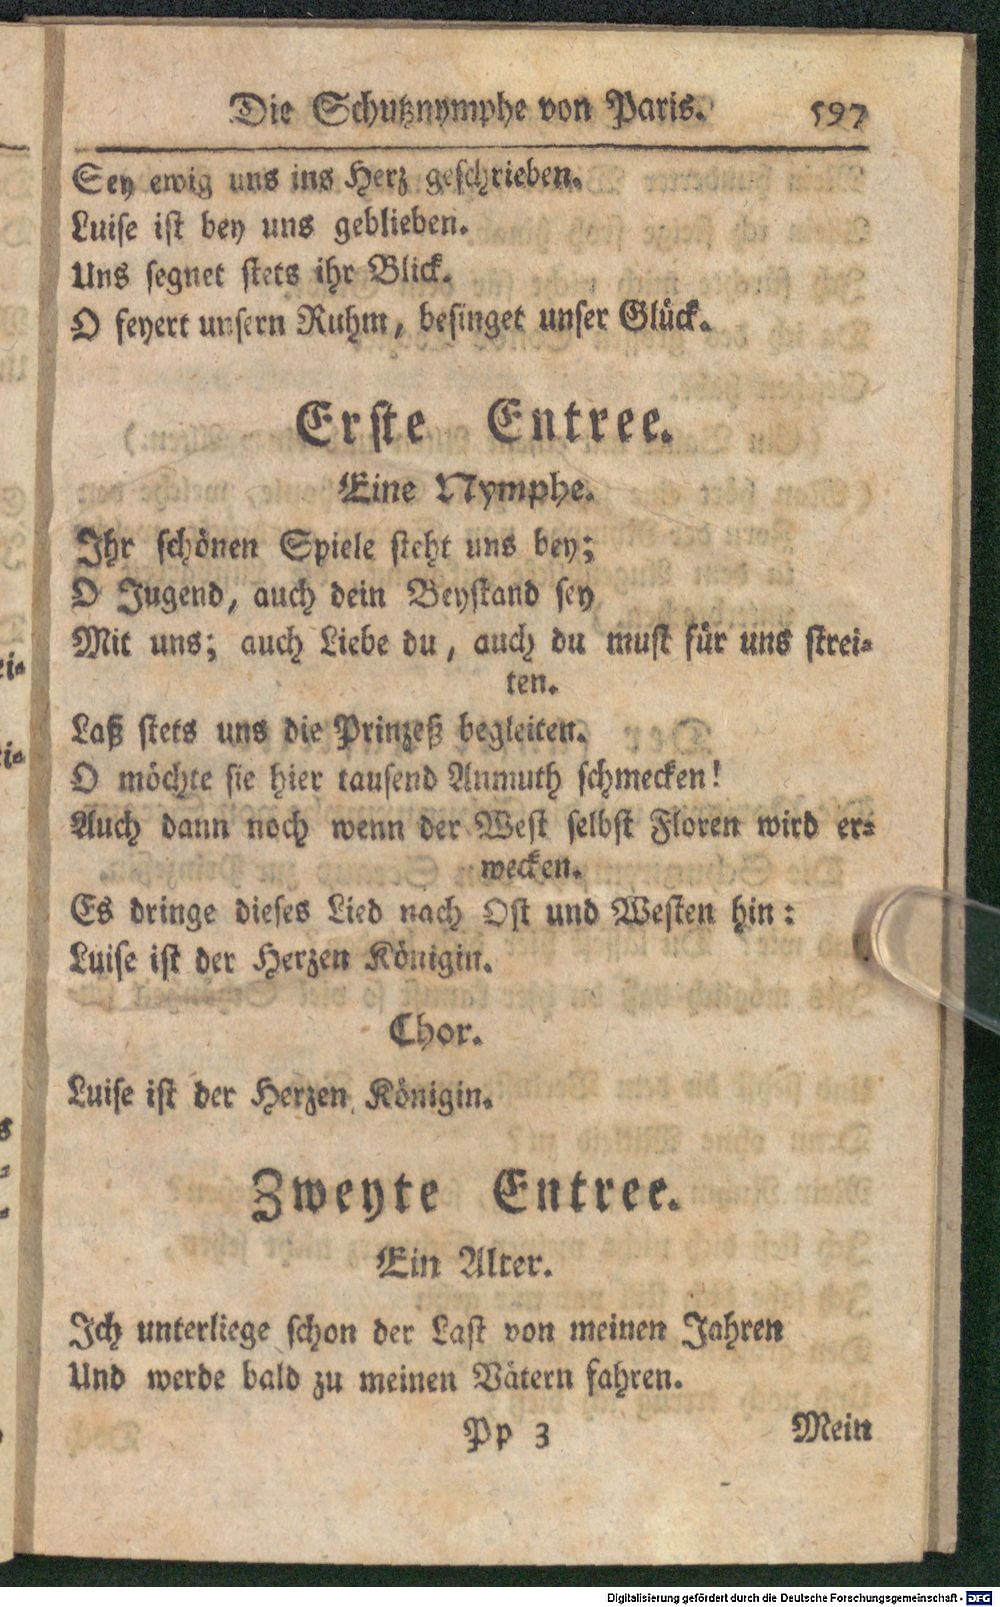 Die Schutznymphe von Paris. 597
Sey ewig uns ins Herz geschrieben.
Luise ist bey uns geblieben.
Uns segnet stets ihr Blick.
O feyert unsern Ruhm, besinget unser Glück.
Erste Entree.
Eine Nymphe.
Ihr schönen Spiele steht uns bey;
O Jugend, auch dein Beystand sey
Mit uns; auch Liebe du, auch du must für uns strei-
ten.
Laß stets uns die Prinzeß begleiten.
O möchte sie hier tausend Anmuth schmecken!
Auch dann noch wenn der West selbst Floren wird er-
wecken.
Es dringe dieses Lied nach Ost und Westen hin:
Luise ist der Herzen Königin.
Chor.
Luise ist der Herzen Königin.
Zweyte Entree.
Ein Alter.
Ich unterliege schon der Last von meinen Jahren
Und werde bald zu meinen Vätern fahren.
Pp 3 Mein
Digitalisierung gefördert durch die Deutsche Forschungsgemeinschaft - DFG